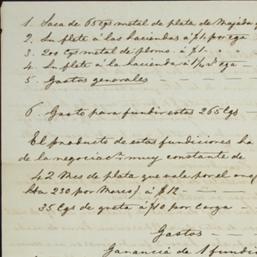 1. Saca de 65 cgs metal de plata de
2. Su flete á las haciendas á $1. por cga
3. 200 cgs metal de plomo á $1. " "
4. Su flete á la hacienda á
5. Gastos generales
6. Gasto para fundir estas 265 Cgs
El producto de estas fundiciones ha
de la negociacn muy constante de
42 Mcs de plata que vale por el
230 por Marco) á $12 —
35 Cgs de greta á $10 por carga
Gastos
Ganancia de 1 fundi